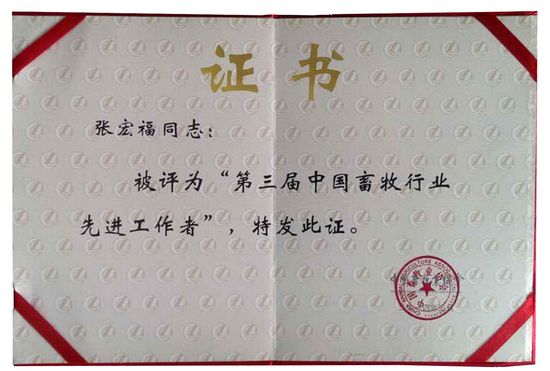 证书
张宏福同志：
被评为“第三届中国畜牧行业
先进工作者”，特发此证。